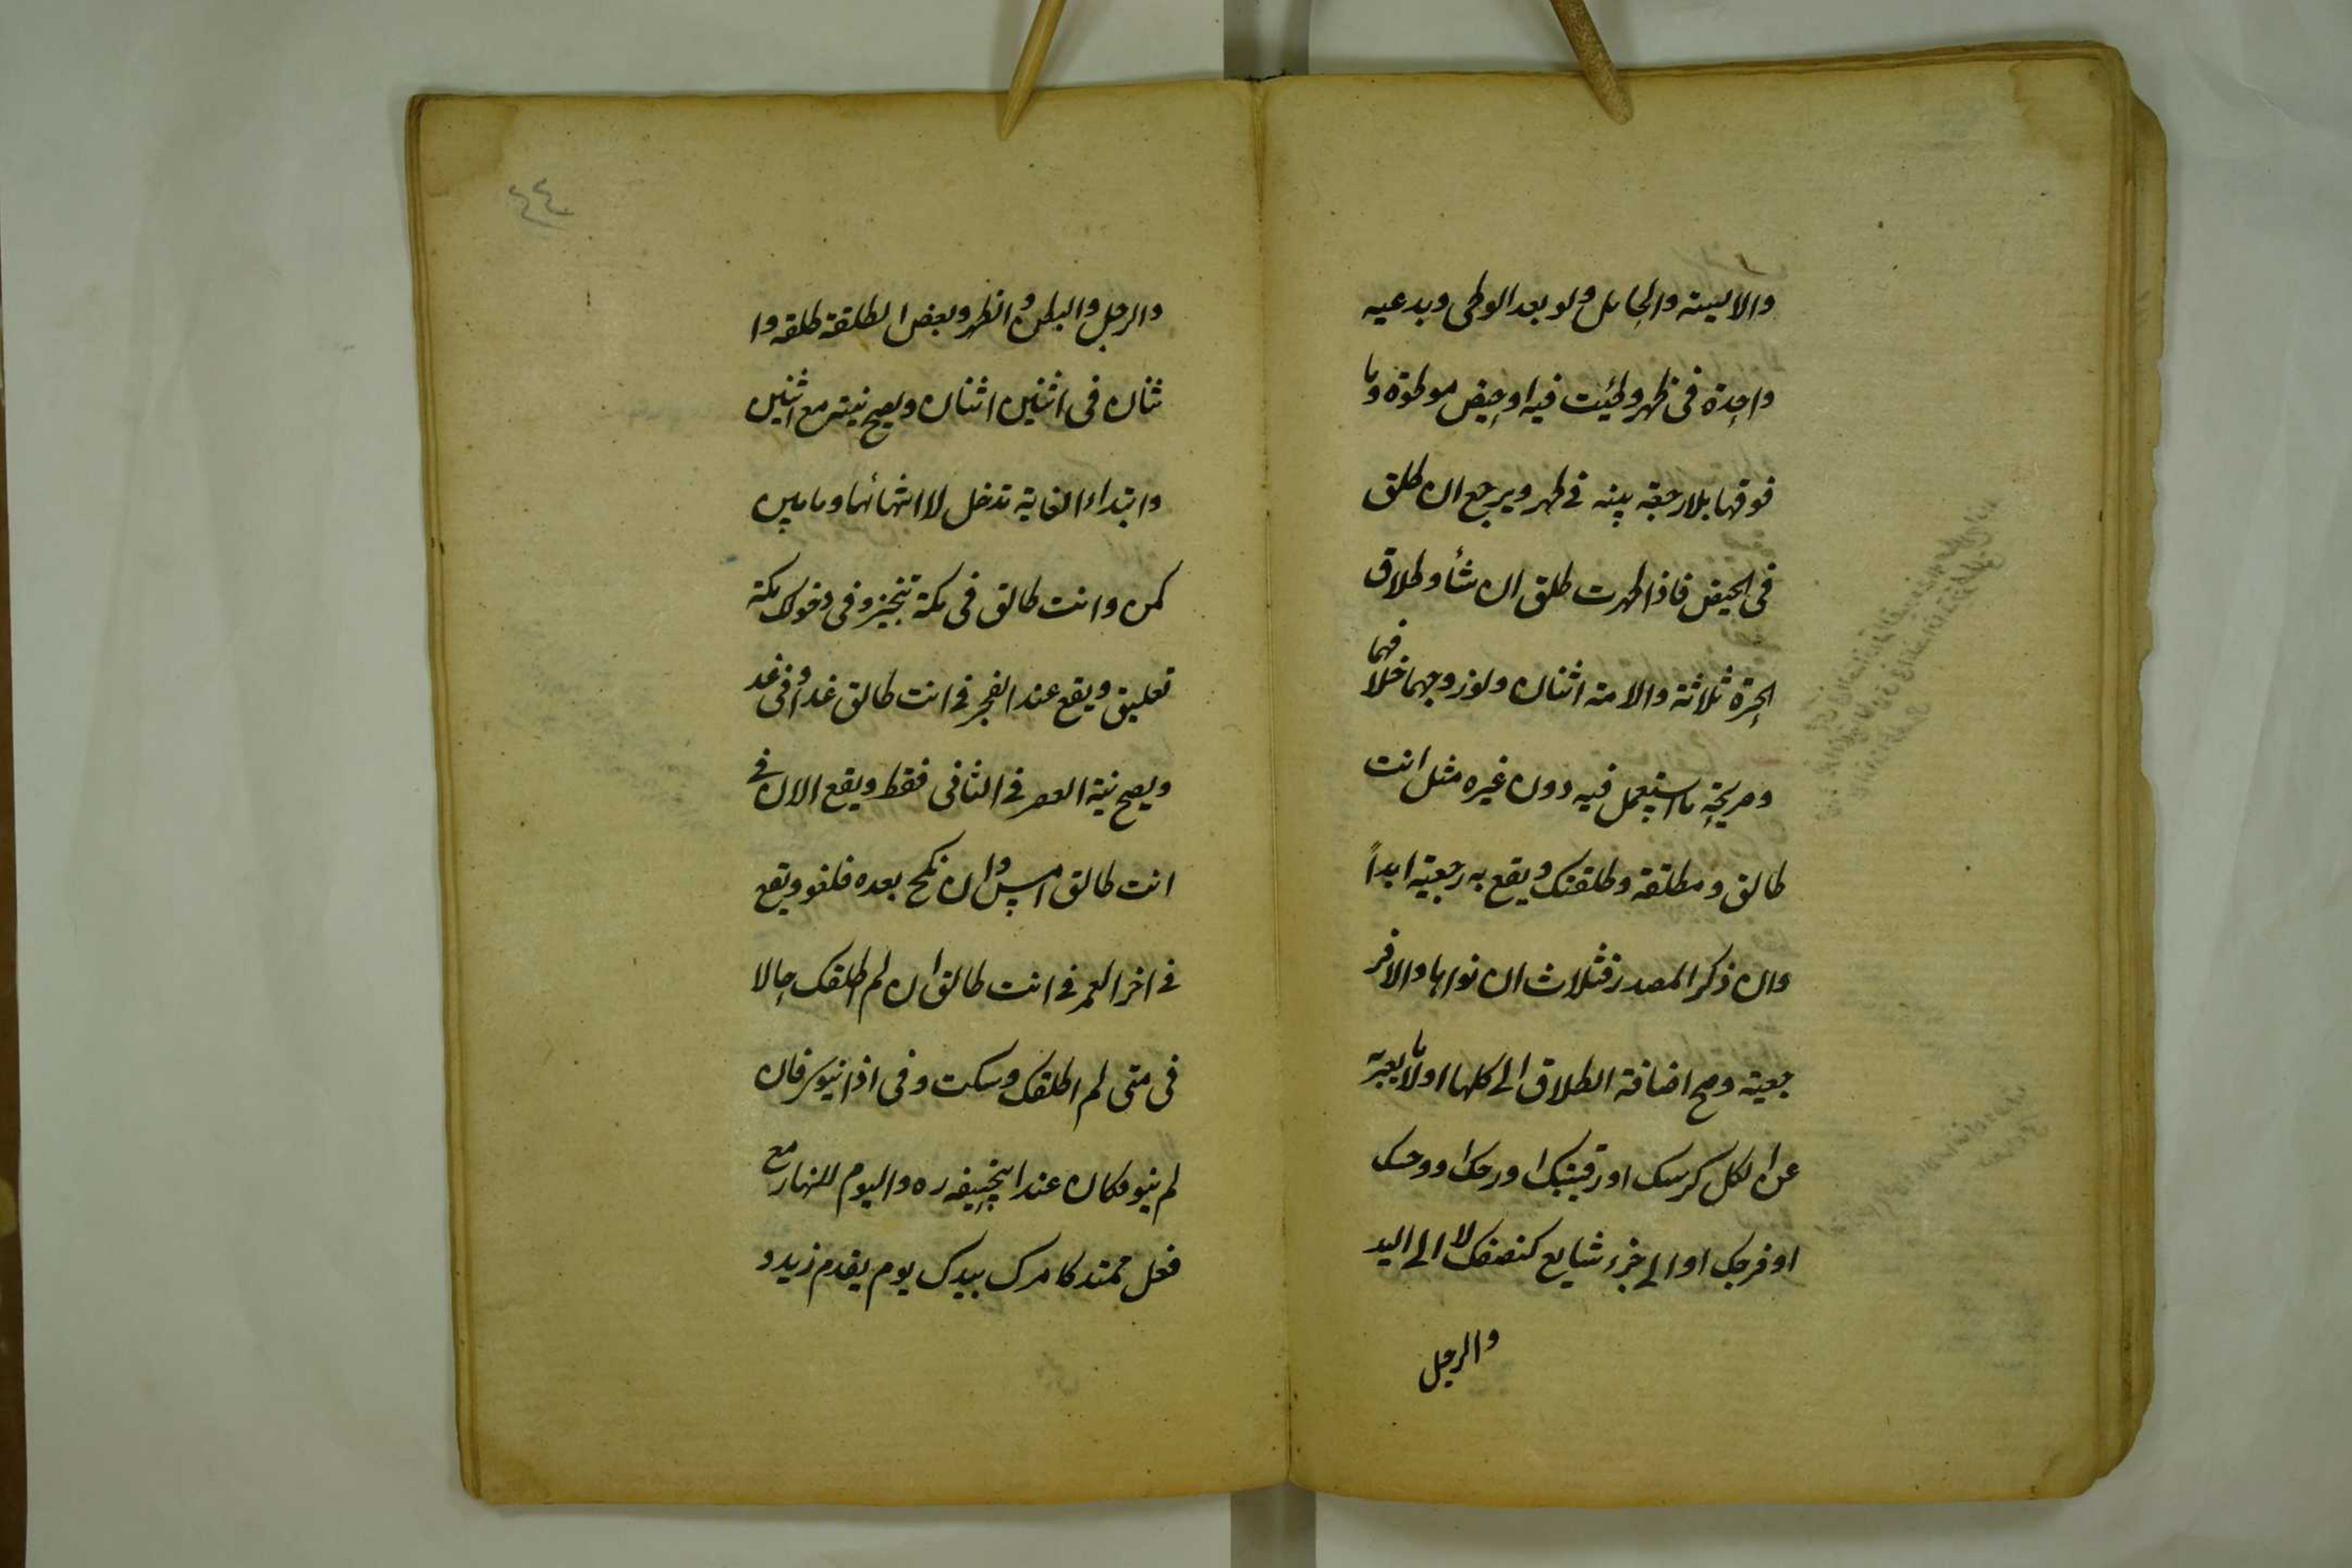 والايسة والحامل ولو بعد الوطى وبدعيه
واحدة في طهر وطئت فيه او حيض موطوة وما
فوقها بلا رجعة بينه في طهر ويرجع ان طلق
في الحيض فاذا طهرت طلق ان شأ وطلاق
الحرة ثلاثة والامة اثنان ولو زوجهما خلافهما
وصريحة ما استعمل فيه دون غيره مثل انت
طالق ومطلقة وطلقتك ويقع به رجعية ابداً
وان ذكر المصدر فثلاث ان نواها والا فر
جعية وصح اضافة الطلاق الى كلها او لما يعبر به
عن الكل كرأسك او رقبتك او روحك او وجهك
او فرجك او الى جزء شايع كنصفك لا الى اليد
والرجل
٤٤
والرجل والبطن والظهر وبعض الطلقة طلقة وا
ثنان في اثنين اثنان ويصح نيته مع اثنين
وابتداء الغاية تدخل لا انتهائها وما بين
كمن وانت طالق في مكة تنجيز وفي دخولك مكة
تعليق ويقع عند الفجر في انت طالق غدا وفي غد
ويصح نية العصر في الثاني فقط ويقع الان في
انت طالق امس وان نكح بعده فلغو ويقع
في اخر العمر في انت طالق ان لم اطلقك وحالا
في متى لم اطلقك وسكت وفي اذا ينوى فان
لم ينو فكان عند ابيحنيفه ره واليوم للنهار مع
فعل ممتد كامرك بيدك يوم يقدم زيد و